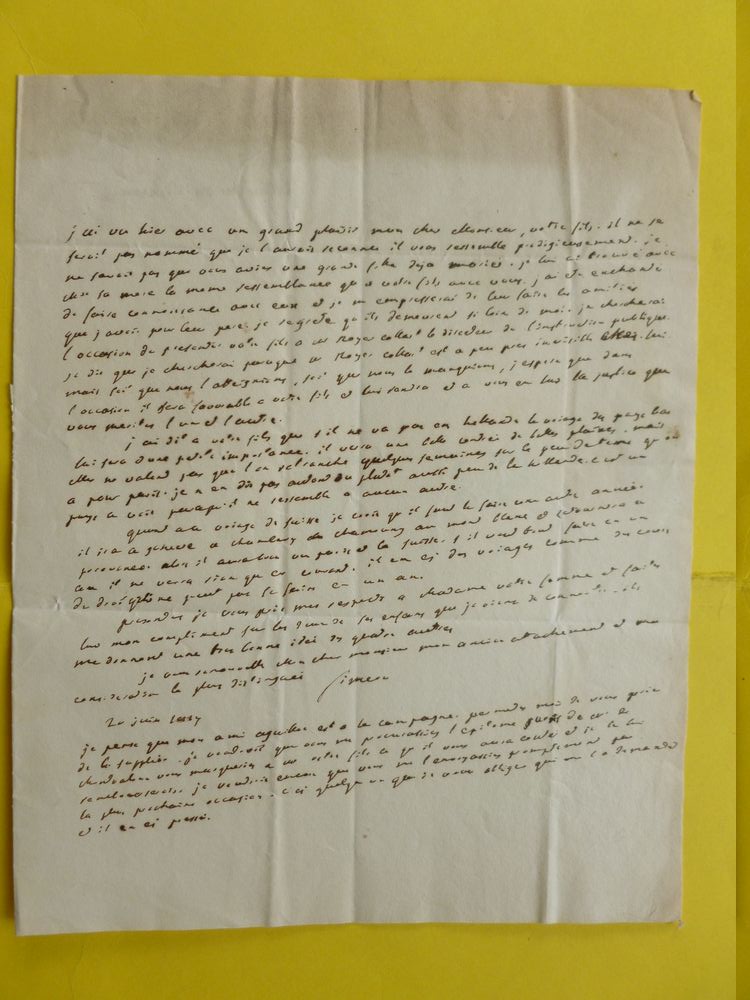 j'ai vu hier avec un grand plaisir mon cher Monsieur, votre fils. il ne se
serait pas nommé que je l'aurais reconnu il vous ressemble prodigieusement. je
ne savais pas que vous aviez une grande fille deja mariée. je lui ai trouvé avec
sa mere la meme ressemblance qu'a votre fils avec vous. j'ai été enchanté
de faire connoissance avec eux et je m'empresserai de leur faire les amitiés
que j'avois pour leur pere. je regrete qu'ils demeurent si loin de moi. je chercherai
l'occasion de presenter votre fils a Mr Royer collard le directeur de l'instruction publique.
je dis que je chercherai parceque Mr Royer collard est a peu pres invisible chez lui
mais soit que nous l'atteignions, soit que nous le manquions, j'espere que dans
l'occasion il sera favorable a votre fils et lui rendra et a vous en lui la justice que
vous meritez l'un et l'autre.
j'ai dit a votre fils que s'il ne va pas en hollande le voyage des pays bas
lui sera d'une petite importance. il verra une belle contrée de belles plaines. mais
elles ne valent pas que l'on retranche quelques semaines sur le peu de tems qu'on
a pour paris. je n'en dis pas autant de la hollande. c'est un
pays a voir parcequ'il ne ressemble a aucun autre.
quant au voyage de suisse je crois qu'il faut le faire une autre année.
il ira a geneve a chambery de chamouny au mont blanc et retournera a
provence. alors il aura vu un peu la suisse. s'il veut tout faire en un
an il ne verra rien qu'en courant. il en est des voyages comme des cours
de droit, on ne peut pas le faire en un an.
presentez je vous prie mes respects a Madame votre femme et faites
lui mon compliment sur les deux de ses enfans que je viens de connoitre. ils
me donnent une tres bonne idée des quatre autres
je vous renouvelle mon cher monsieur mon ancien attachement et ma
consideration la plus distinguée Simeon
20 juin
je pense que mon ami est a la campagne. permettez moi de vous prier
de le suppléer. je voudrois que vous me procurassiez l'epitome de Mr
vous marquerez a Mr votre fils ce qu'il vous aura couté et je le lui
rembourserai. je voudrois encore que vous me l'envoyassiez promptement par
la plus prochaine occasion. c'est quelqu'un que je veux obliger qui me l'a demandé
et il en est pressé.